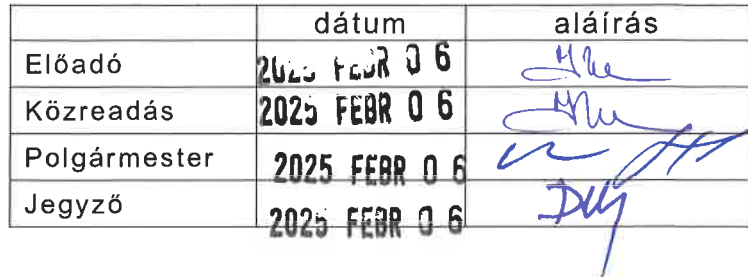 dátum aláírás
Előadó 2025 FEBR 06
Közreadás 2025 FEBR 06
Polgármester 2025 FEBR 06
Jegyző 2025 FEBR 06